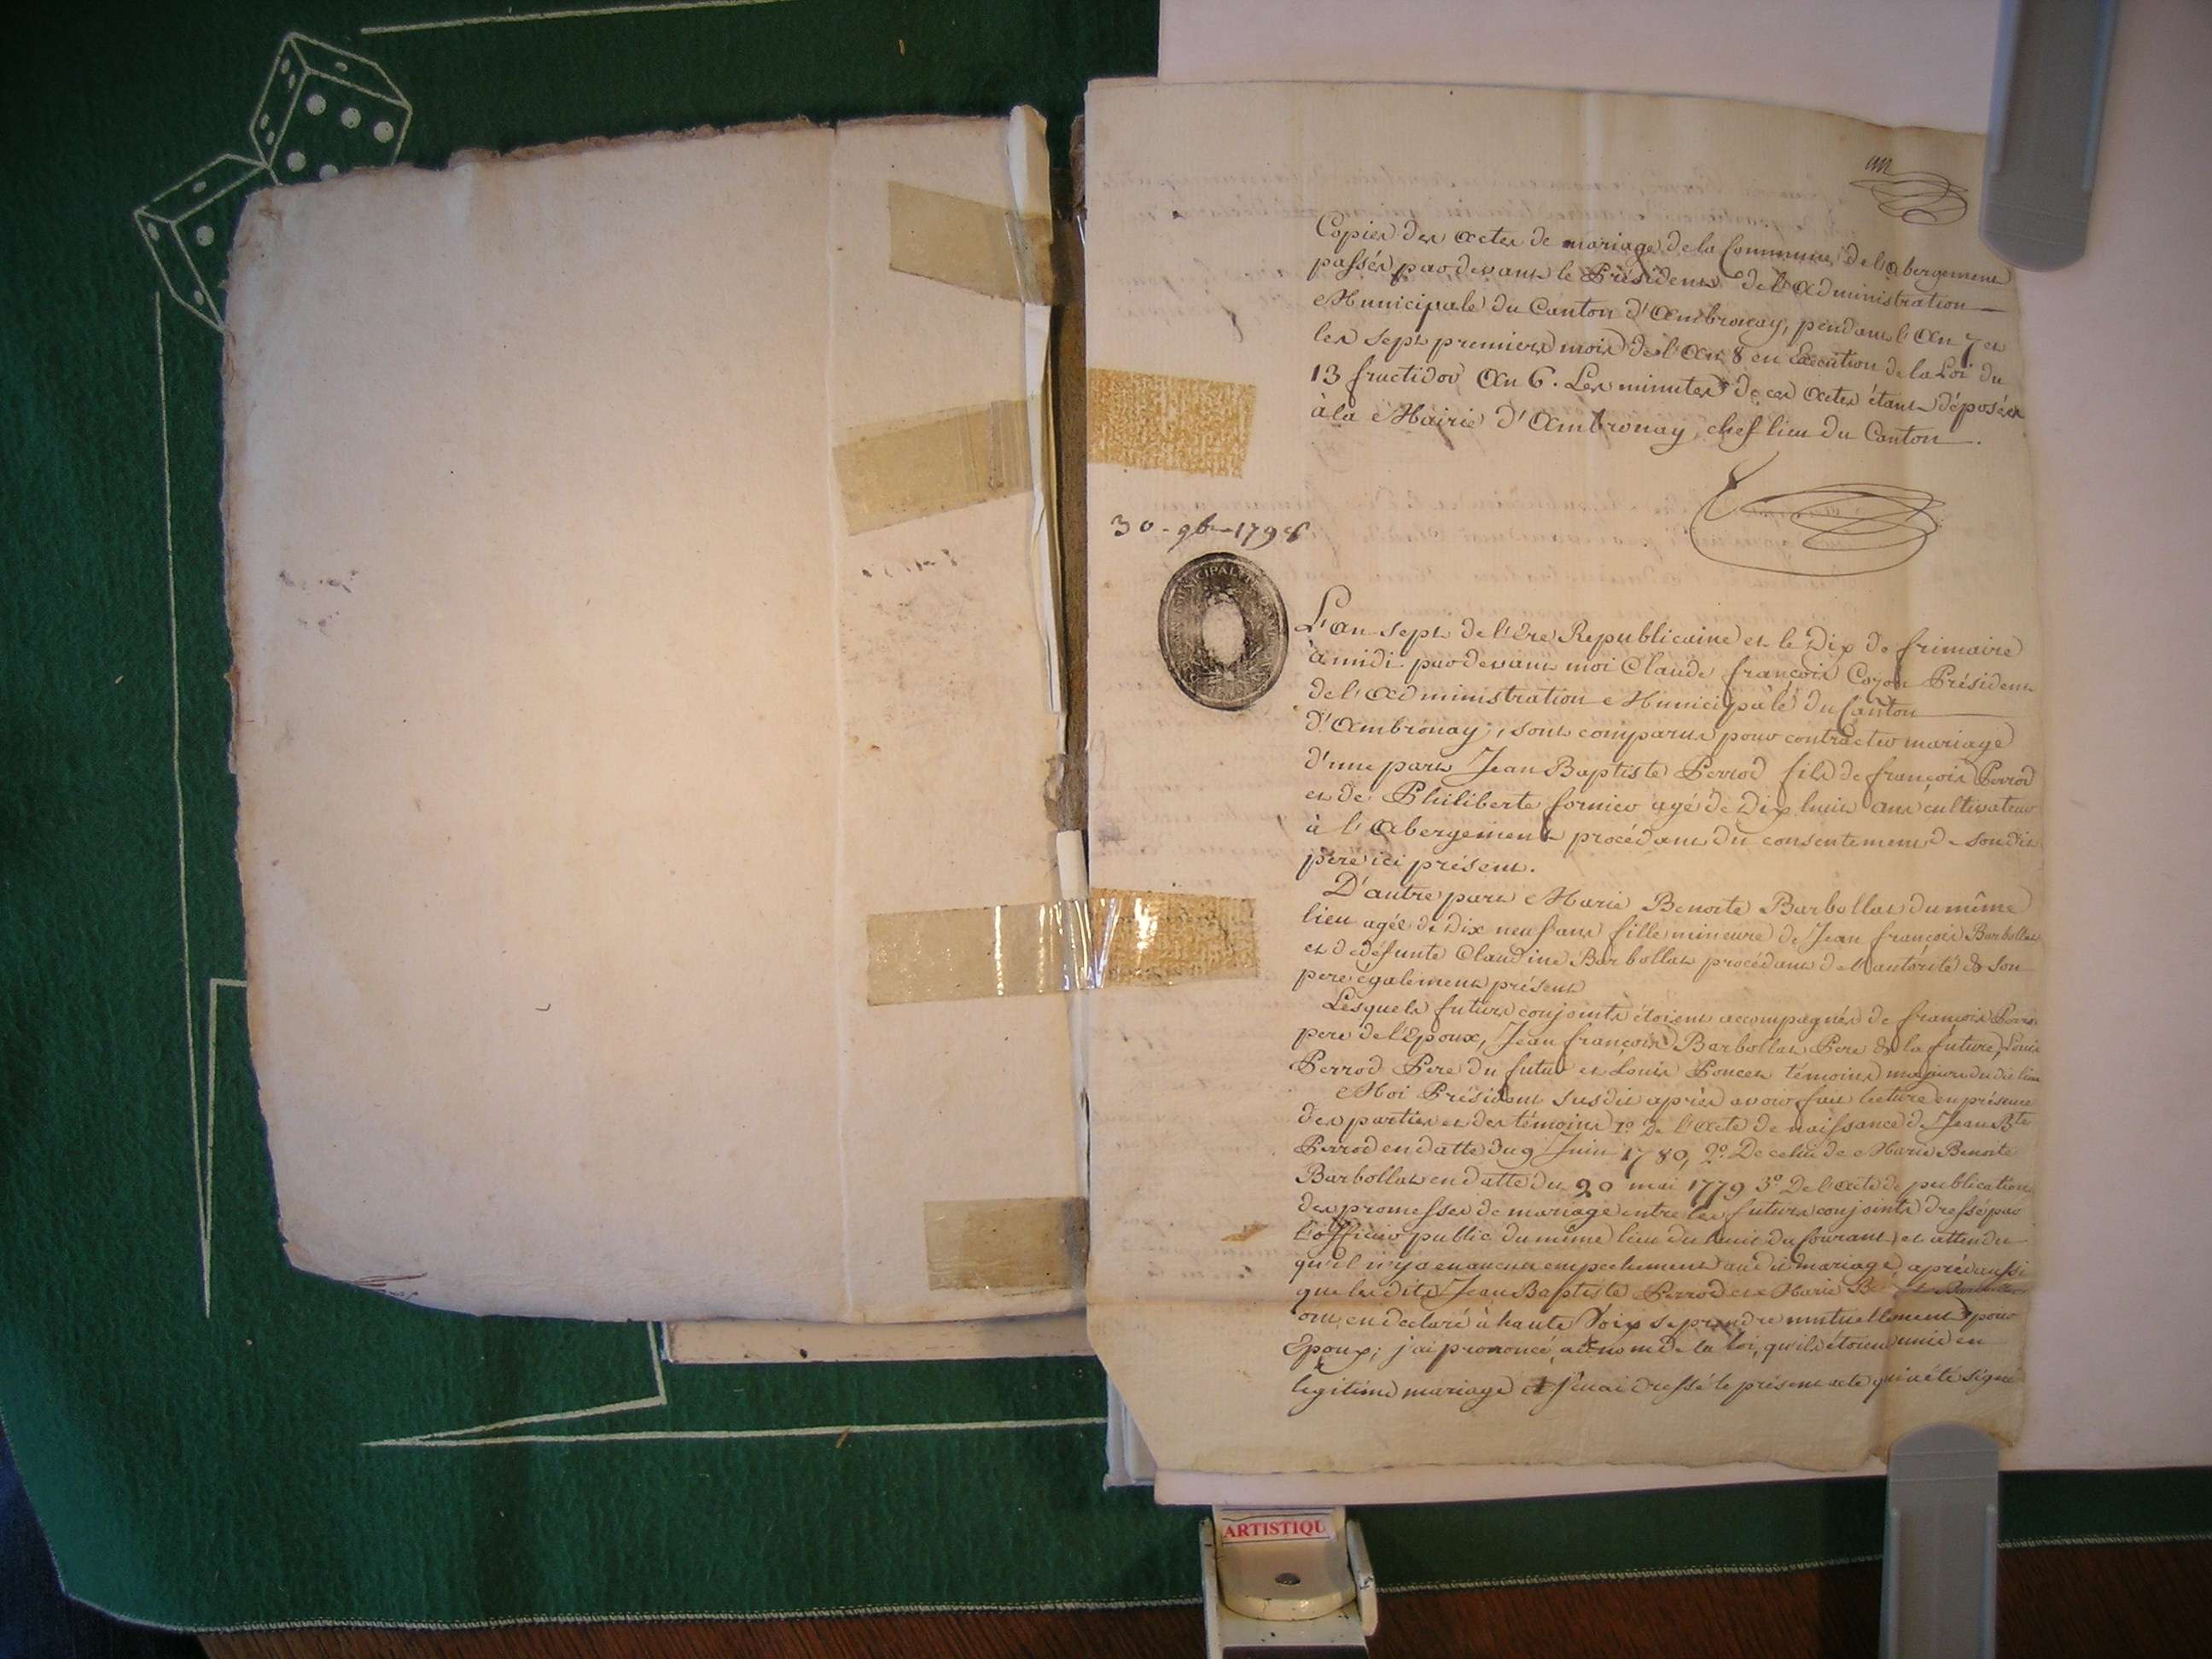 Copies des actes de mariage de la Commune de l'abergement
passés par devant le Président de l'administration
Municipale du Canton d'Ambronay, pendant l'an 7 et
les sept premiers mois de l'an 8 en Execution de la Loi du
13 fructidor an 6. Les minutes de ces actes étant déposées
à la Mairie d'Ambronay, chef lieu du Canton.
30 - 9b - 1798
MUNICIPAL
L'an sept de l'Ere Republicaine et le Dix de frimaire
à midi par devant moi Claude françois Cozon Président
de l'administration Municipale du Canton
d'Ambronay, sont comparus pour contracter mariage
d'une part Jean Baptiste Perrod fils de françois Perrod
et de Philiberte fornier agé de Dix huit ans cultivateur
à l'abergement procédant du consentement de son dit
père ici présent.
D'autre part Marie Benoite Barbollat du même
lieu agée de Dix neuf ans fille mineure de Jean françois Barbollat
et de défunte Claudine Barbollat procédant de l'autorité de son
pere également présent
Lesquels futurs conjoints étoient accompagnés de françois Perrod
pere de l'Epoux, Jean françois Barbollat Pere de la future, Louis
Perrod Pere du futur et Louis Poncet témoins majeurs du dit lieu
Moi Président susdit après avoir fait lecture en présence
des parties et des témoins 1º De l'acte de naissance de Jean Bte
Perrod en datte du 9 Juin 1780, 2º. De celui de Marie Benoite
Barbollat en datte du 20 mai 1779 3º De l'acte de publication
des promesses de mariage entre les futurs conjoints dressé par
l'officier public du même lieu du huit du Courant et attendu
qu'il n'y a eu aucun empechement au dit mariage, après aussi
que les dits Jean Baptiste Perrod et Marie
ont eu declaré à haute Voix se prendre mutuellement pour
Epoux; j'ai prononcé au nom de la loi, qu'ils étoient unis en
legitime mariage et j'en ai dressé le présent acte qui a été signé
ARTISTIQU